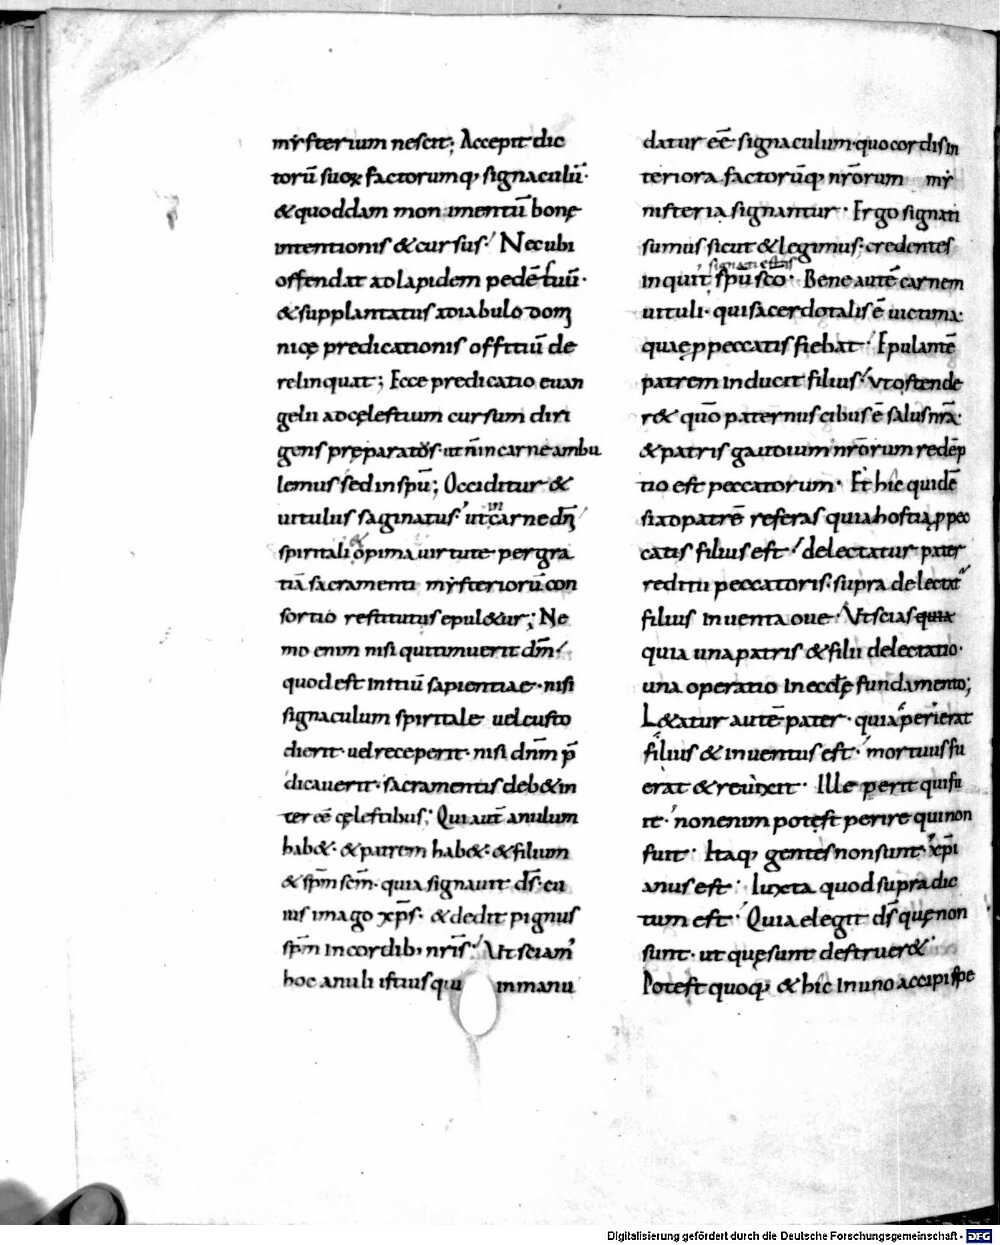 mẏsterium nescit; Accepit dic
torū suoꝝ factorumq; signaculū·
&quoddam monimentū bonę
intentionis & cursus· Necubi
offendat adlapidem pedē tuū·
& supplantatus adiabulo dom
nicę predicationis offitiū de
relinquat; Ecce predicatio euan
gelii adcęlestium cursum diri
gens pręparatos· ut ñ incarne ambu
lemus sed in spū; Occiditur &
uitulus saginatus· ut carne dñi
in
spiritali opima uirtute per gra
tiā sacramenti mẏsteriorū con
sortio restitutus epul&ur; Ne
mo enim nisi qui timuerit dm̄·
quod est initiū sapientiae· nisi
signaculum spiritale uel custo
dierit· uel receperit· nisi dñm p̄
dicauerit· sacramentis deb& in
ter eē cęlestibus; Qui aut̄ anulum
hab&· & patrem hab&· & filium
& spm̄ scm̄· quia signauit ds̄· cu
ius imago xp̄s· & dedit pignus
spm̄ in cordib; nr̄is· Ut sciam'
hoc anuli istius qui in manu
datur eē signaculum· quo cordis in
teriora factorūq; nr̄orum mẏ
nisteria signantur· Ergo signati
sumus sicut & legimus; credentes
signati estis
inquit spū sco· Bene autē carnem
uituli· qui sacerdotalis ē uictima·
quae p peccatis fiebat· Epulantē
patrem inducit filius· ut ostende
r& quō paternus cibus ē salus nr̄a·
& patris gaudium nr̄orum redēp
tio est peccatorum· Et hic quidē
si ad patrē referas quia hostia p pec
catis filius est· delectatur pater
reditu peccatoris· supra delectat'
filius inuenta oue· Ut scias quia
quia una patris & filii delectatio·
una operatio in eccłę fundamento;
L&atur autē pater· quia perierat
filius & inuentus est· mortuus fu
erat & reuixit· Ille perit qui fu
it· non enim potest perire qui non
fuit· Itaq; gentes non sunt· xp̄i
anus est· Iuxta quod supra dic
tum est· Quia elegit ds̄ quę non
sunt· ut quę sunt destruer&·
Potest quoq; & hic in uno accipi spe
Digitalisierung gefördert durch die Deutsche Forschungsgemeinschaft - DFG